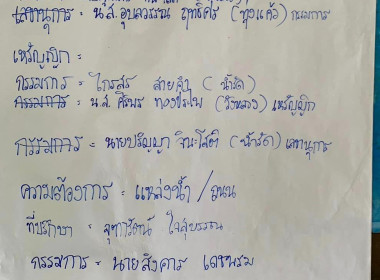 เลขานุการ = น.ส. อุบลวรรณ ฤทธิศร (ทุ่งแค้ว) กรรมการ
เหรัญญิก =
กรรมการ = ไกรสร สายคำ (น้ำรัด)
กรรมการ = น.ส. ศิริพร ทองประไพ (วังหลวง) เหรัญญิก
กรรมการ = นายปริญญา จินะโสติ (น้ำรัด) เลขานุการ
ความต้องการ = แหล่งน้ำ / ถนน
ที่ปรึกษา = จุฑารัตน์ ใจสุบรรณ
กรรมการ = นายสังคาร เดชพรม